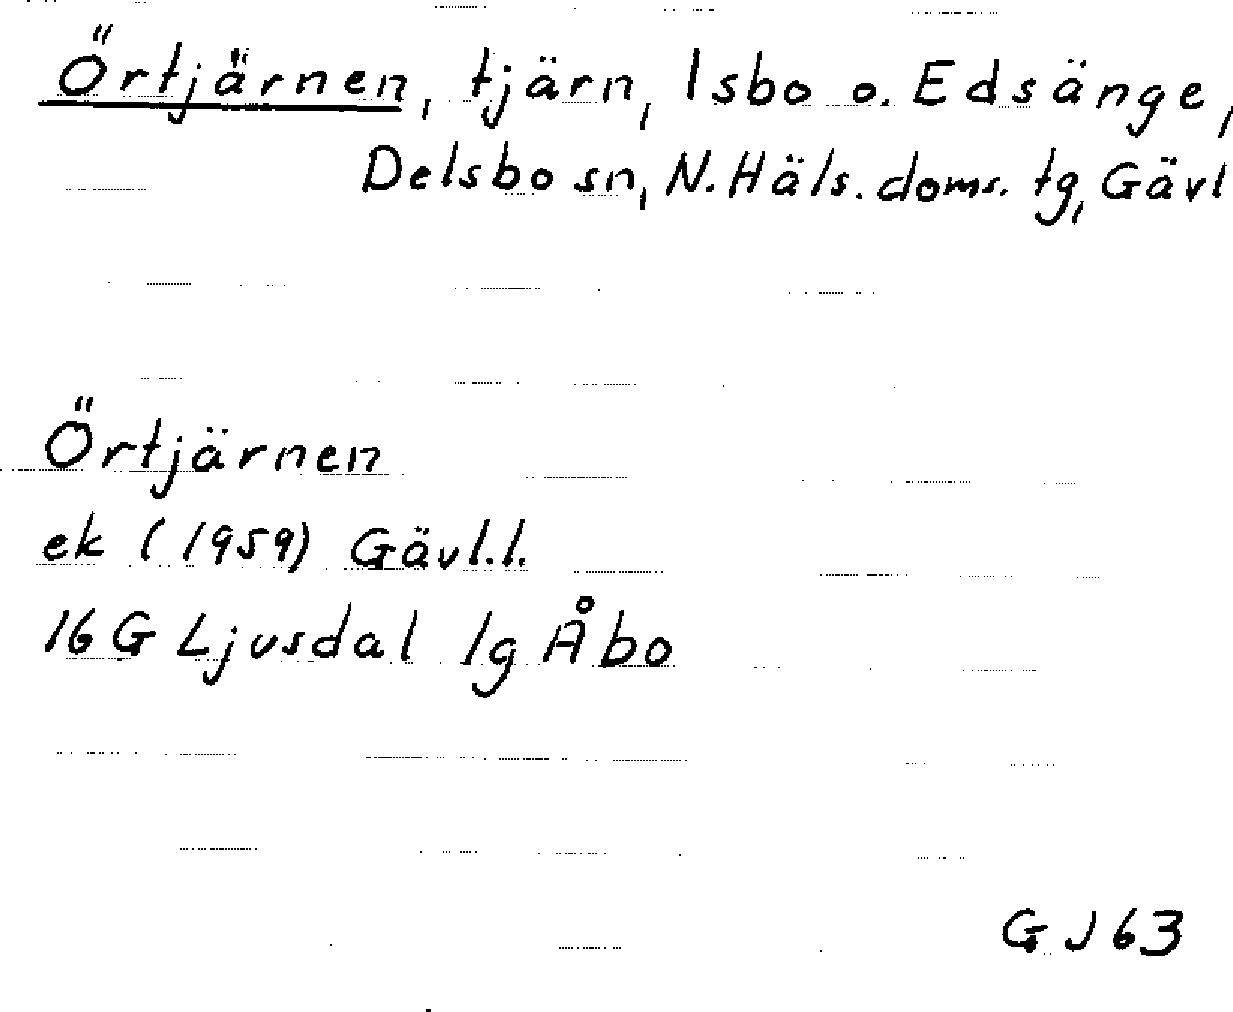 Örtjärnen, tjärn, Isbo o. Edsänge,
Delsbo sn, N. Häls. doms. tg, Gävl
Örtjärnen
ek (1959) Gävl.l.
16 G Ljusdal 1g Åbo
GJ 63